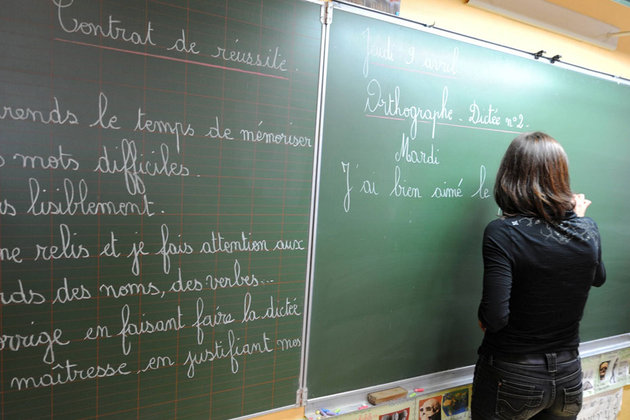 Contrat de réussite.
rends le temps de mémoriser
mots difficiles.
lisiblement.
me relis et je fais attention aux
rds des noms, des verbes...
orrige en faisant faire la dictée
maîtresse, en justifiant mes
Jeudi 9 avril
Orthographe - Dictée n°2.
Mardi
J'ai bien aimé le